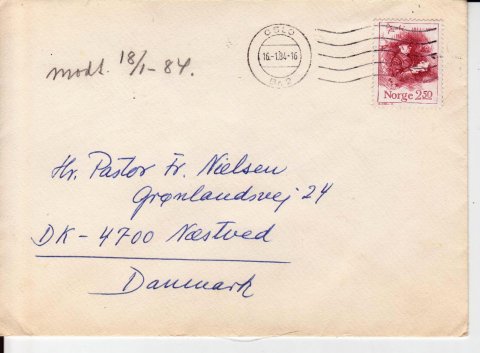 OSLO
16.-1.84-16
Br. 2
Norge 2.50
modt. 18/1-84.
Hr. Pastor Fr. Nielsen
Grønlandsvej 24
DK-4700 Næstved
Danmark